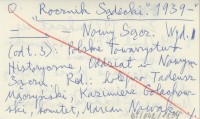 "Rocznik Sądecki". 1939-
Nowy Sącz. Wyd.
(odt. 5): Polskie Towarzystwo
Historyczne Oddział w Nowym
Sączu. Red.: Tadeusz
Mączyński, Kazimierz Golachow-
ski, komitet, Marian Nowak